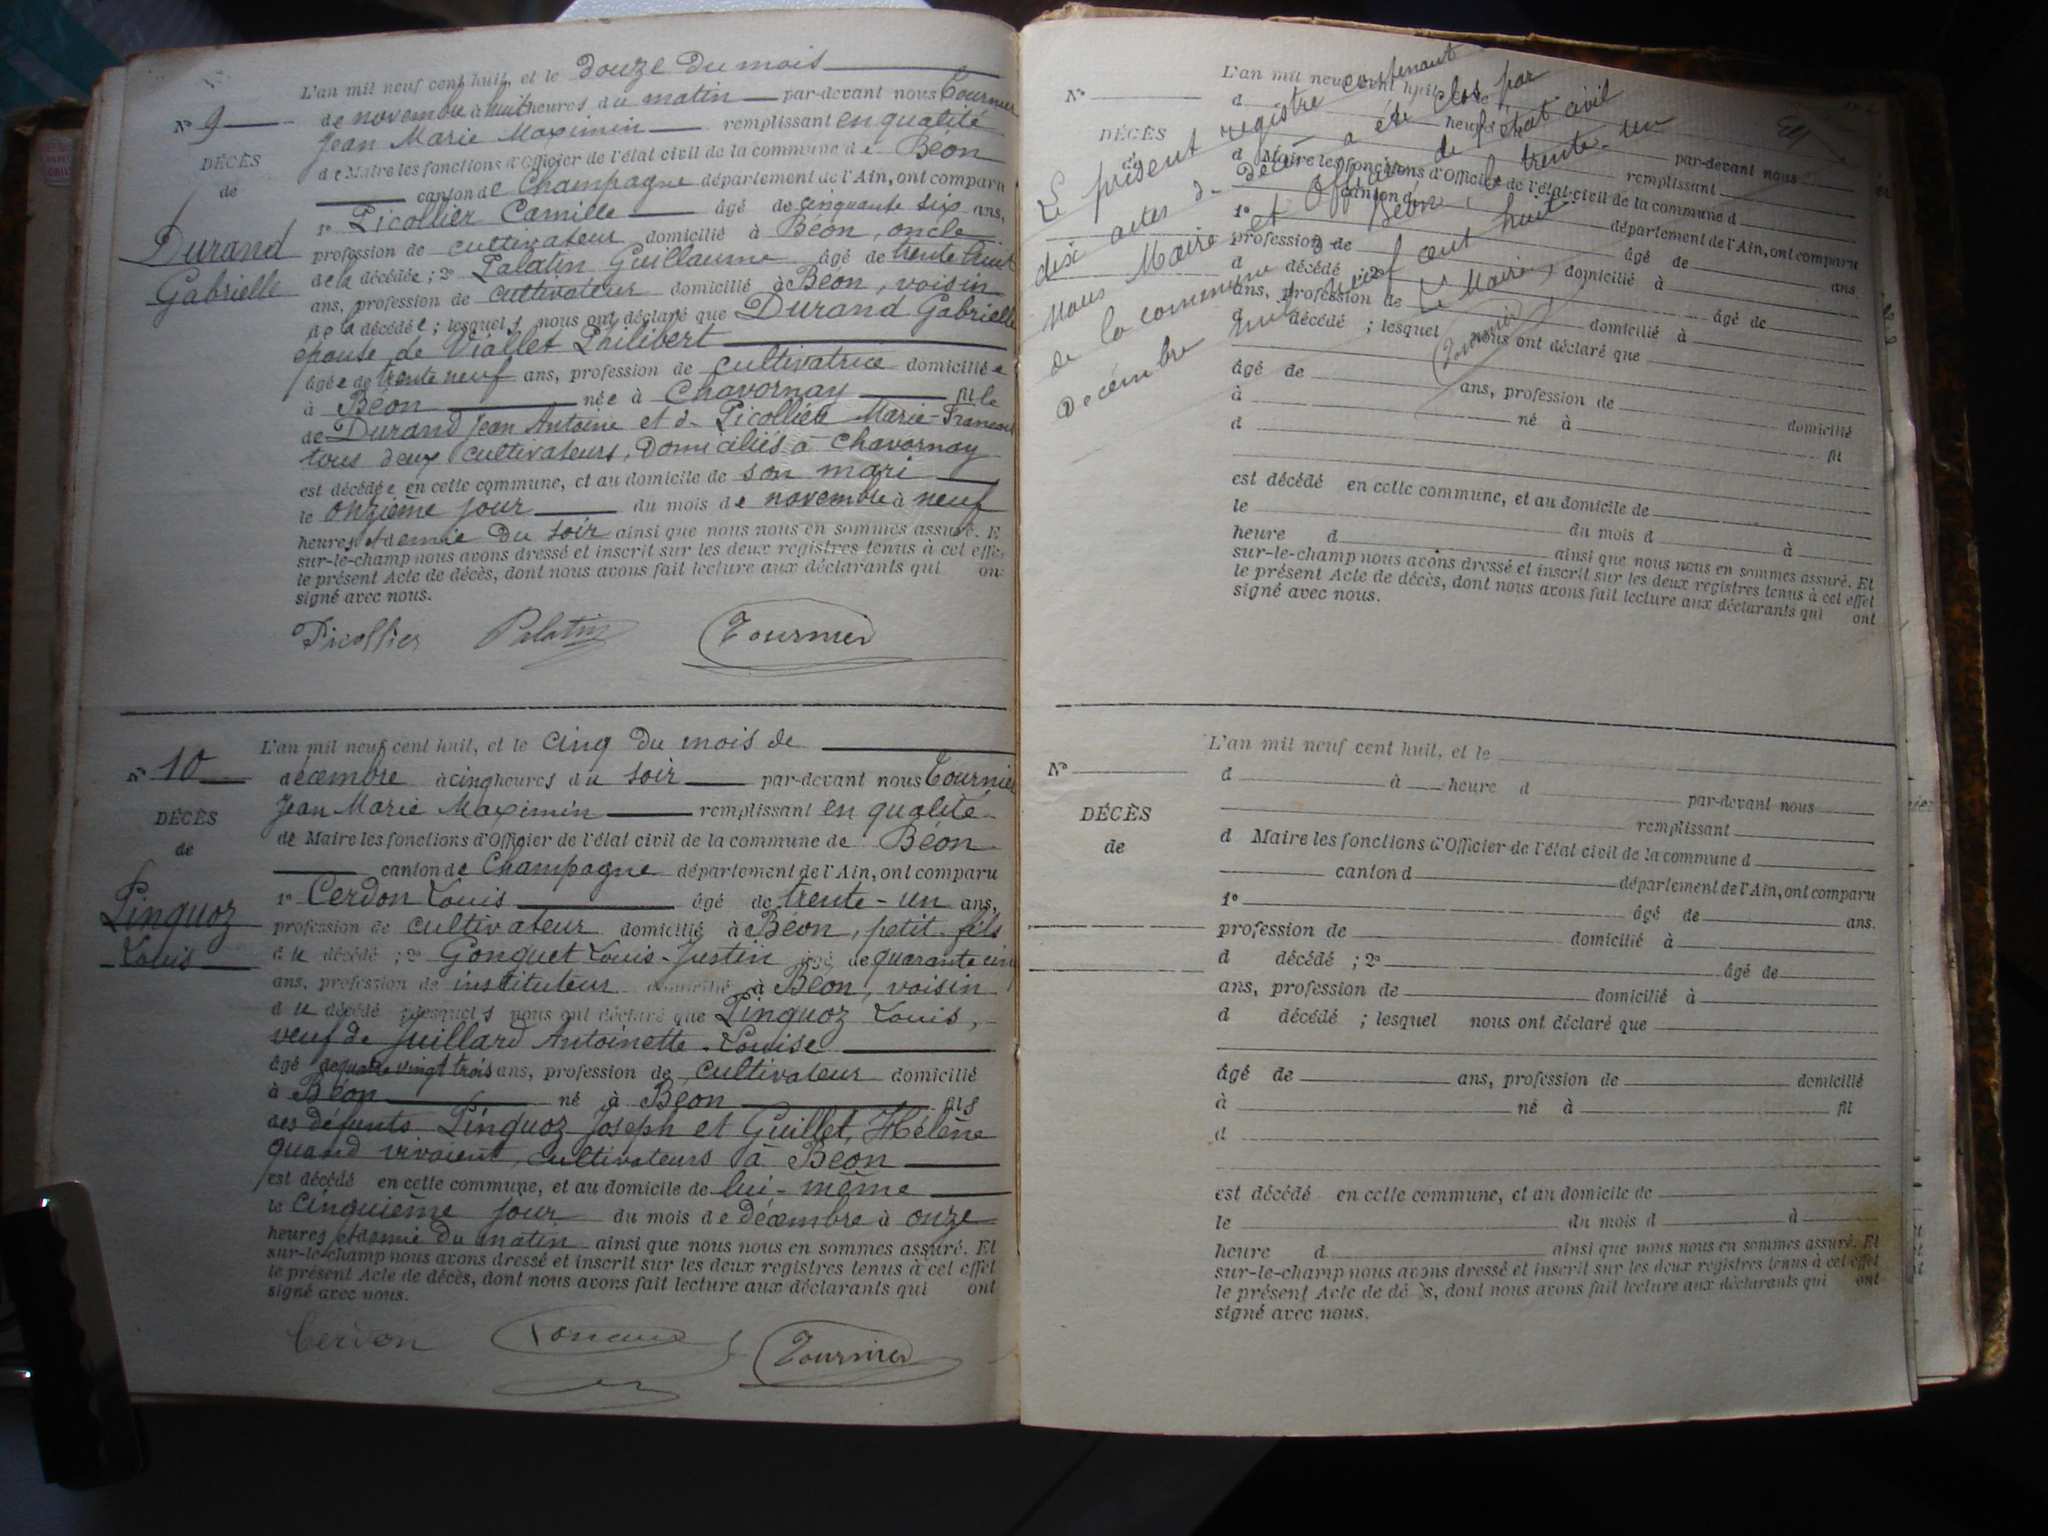 L'an mil neuf cent huit, et le douze du mois
de novembre à huit heures du matin par-devant nous Tournier
Jean Marie Maximin remplissant en qualité
de Maire les fonctions d'Officier de l'état civil de la commune de Béon
canton de Champagne département de l'Ain, ont comparu
1º Picollier Camille âgé de cinquante six ans,
profession de cultivateur domicilié à Béon, oncle
de la décédée ; 2º Palatin Guillaume âgé de trente huit
ans, profession de cultivateur domicilié à Béon, voisin
de la décédée ; lesquels nous ont déclaré que Durand Gabrielle
épouse de Viallet Philibert
âgée de trente neuf ans, profession de cultivatrice domiciliée
à Béon née à Chavornay fille
de Durand Jean Antoine et de Picollier Marie-Francoise
tous deux cultivateurs, domiciliés à Chavornay
est décédée en cette commune, et au domicile de son mari
le onzième jour du mois de novembre à neuf
heures et demie du soir ainsi que nous nous en sommes assuré. E
sur-le-champ nous avons dressé et inscrit sur les deux registres tenus à cet effet
le présent Acte de décès, dont nous avons fait lecture aux déclarants qui on
signé avec nous.
Nº 9
DÉCÈS
de
Durand
Gabrielle
Picollier Palatin Tournier
L'an mil neuf cent huit, et le cinq du mois de
décembre à cinq heures du soir par-devant nous Tournier
Jean Marie Maximin remplissant en qualité
de Maire les fonctions d'Officier de l'état civil de la commune de Béon
canton de Champagne département de l'Ain, ont comparu
1º Cerdon Louis âgé de trente-un ans,
profession de cultivateur domicilié à Béon, petit-fils
du décédé ; 2º Gonguet Louis-Justin âgé de quarante cinq
ans, profession de instituteur domicilié à Béon, voisin
du décédé ; lesquels nous ont déclaré que Pinquoz Louis,
veuf de Juillard Antoinette-Louise
âgé de quatre vingt trois ans, profession de cultivateur domicilié
à Béon né à Béon fils
des défunts Pinquoz Joseph et Guillet Hélène
quand vivaient, cultivateurs à Béon
est décédé en cette commune, et au domicile de lui-même
le cinquième jour du mois de décembre à onze
heures et demie du matin ainsi que nous nous en sommes assuré. Et
sur-le-champ nous avons dressé et inscrit sur les deux registres tenus à cet effet
le présent Acte de décès, dont nous avons fait lecture aux déclarants qui ont
signé avec nous.
Nº 10
DÉCÈS
de
Pinquoz
Louis
Cerdon Tournier
Le présent registre contenant
dix actes de décès a été clos par
nous Maire et Officier de l'état civil
de la commune de Béon, le trente-un
décembre mil neuf cent huit.
Le Maire,
Tournier
L'an mil neuf cent huit, et le
Nº
d à heure d par-devant nous
DÉCÈS
de
remplissant
d Maire les fonctions d'Officier de l'état civil de la commune d
canton d département de l'Ain, ont comparu
1º âgé de ans.
profession de domicilié à
d décédé ; 2º âgé de
ans, profession de domicilié à
d décédé ; lesquel nous ont déclaré que
âgé de ans, profession de domicilié
à né à fil
d
est décédé en cette commune, et au domicile de
le du mois d à
heure d ainsi que nous nous en sommes assuré. Et
sur-le-champ nous avons dressé et inscrit sur les deux registres tenus à cet effet
le présent Acte de décès, dont nous avons fait lecture aux déclarants qui ont
signé avec nous.
L'an mil neuf cent huit, et le
Nº
d à heure d par-devant nous
DÉCÈS
de
remplissant
d Maire les fonctions d'Officier de l'état civil de la commune d
canton d département de l'Ain, ont comparu
1º âgé de ans.
profession de domicilié à
d décédé ; 2º âgé de
ans, profession de domicilié à
d décédé ; lesquel nous ont déclaré que
âgé de ans, profession de domicilié
à né à fil
d
est décédé en cette commune, et au domicile de
le du mois d à
heure d ainsi que nous nous en sommes assuré. Et
sur-le-champ nous avons dressé et inscrit sur les deux registres tenus à cet effet
le présent Acte de dé s, dont nous avons fait lecture aux déclarants qui ont
signé avec nous.